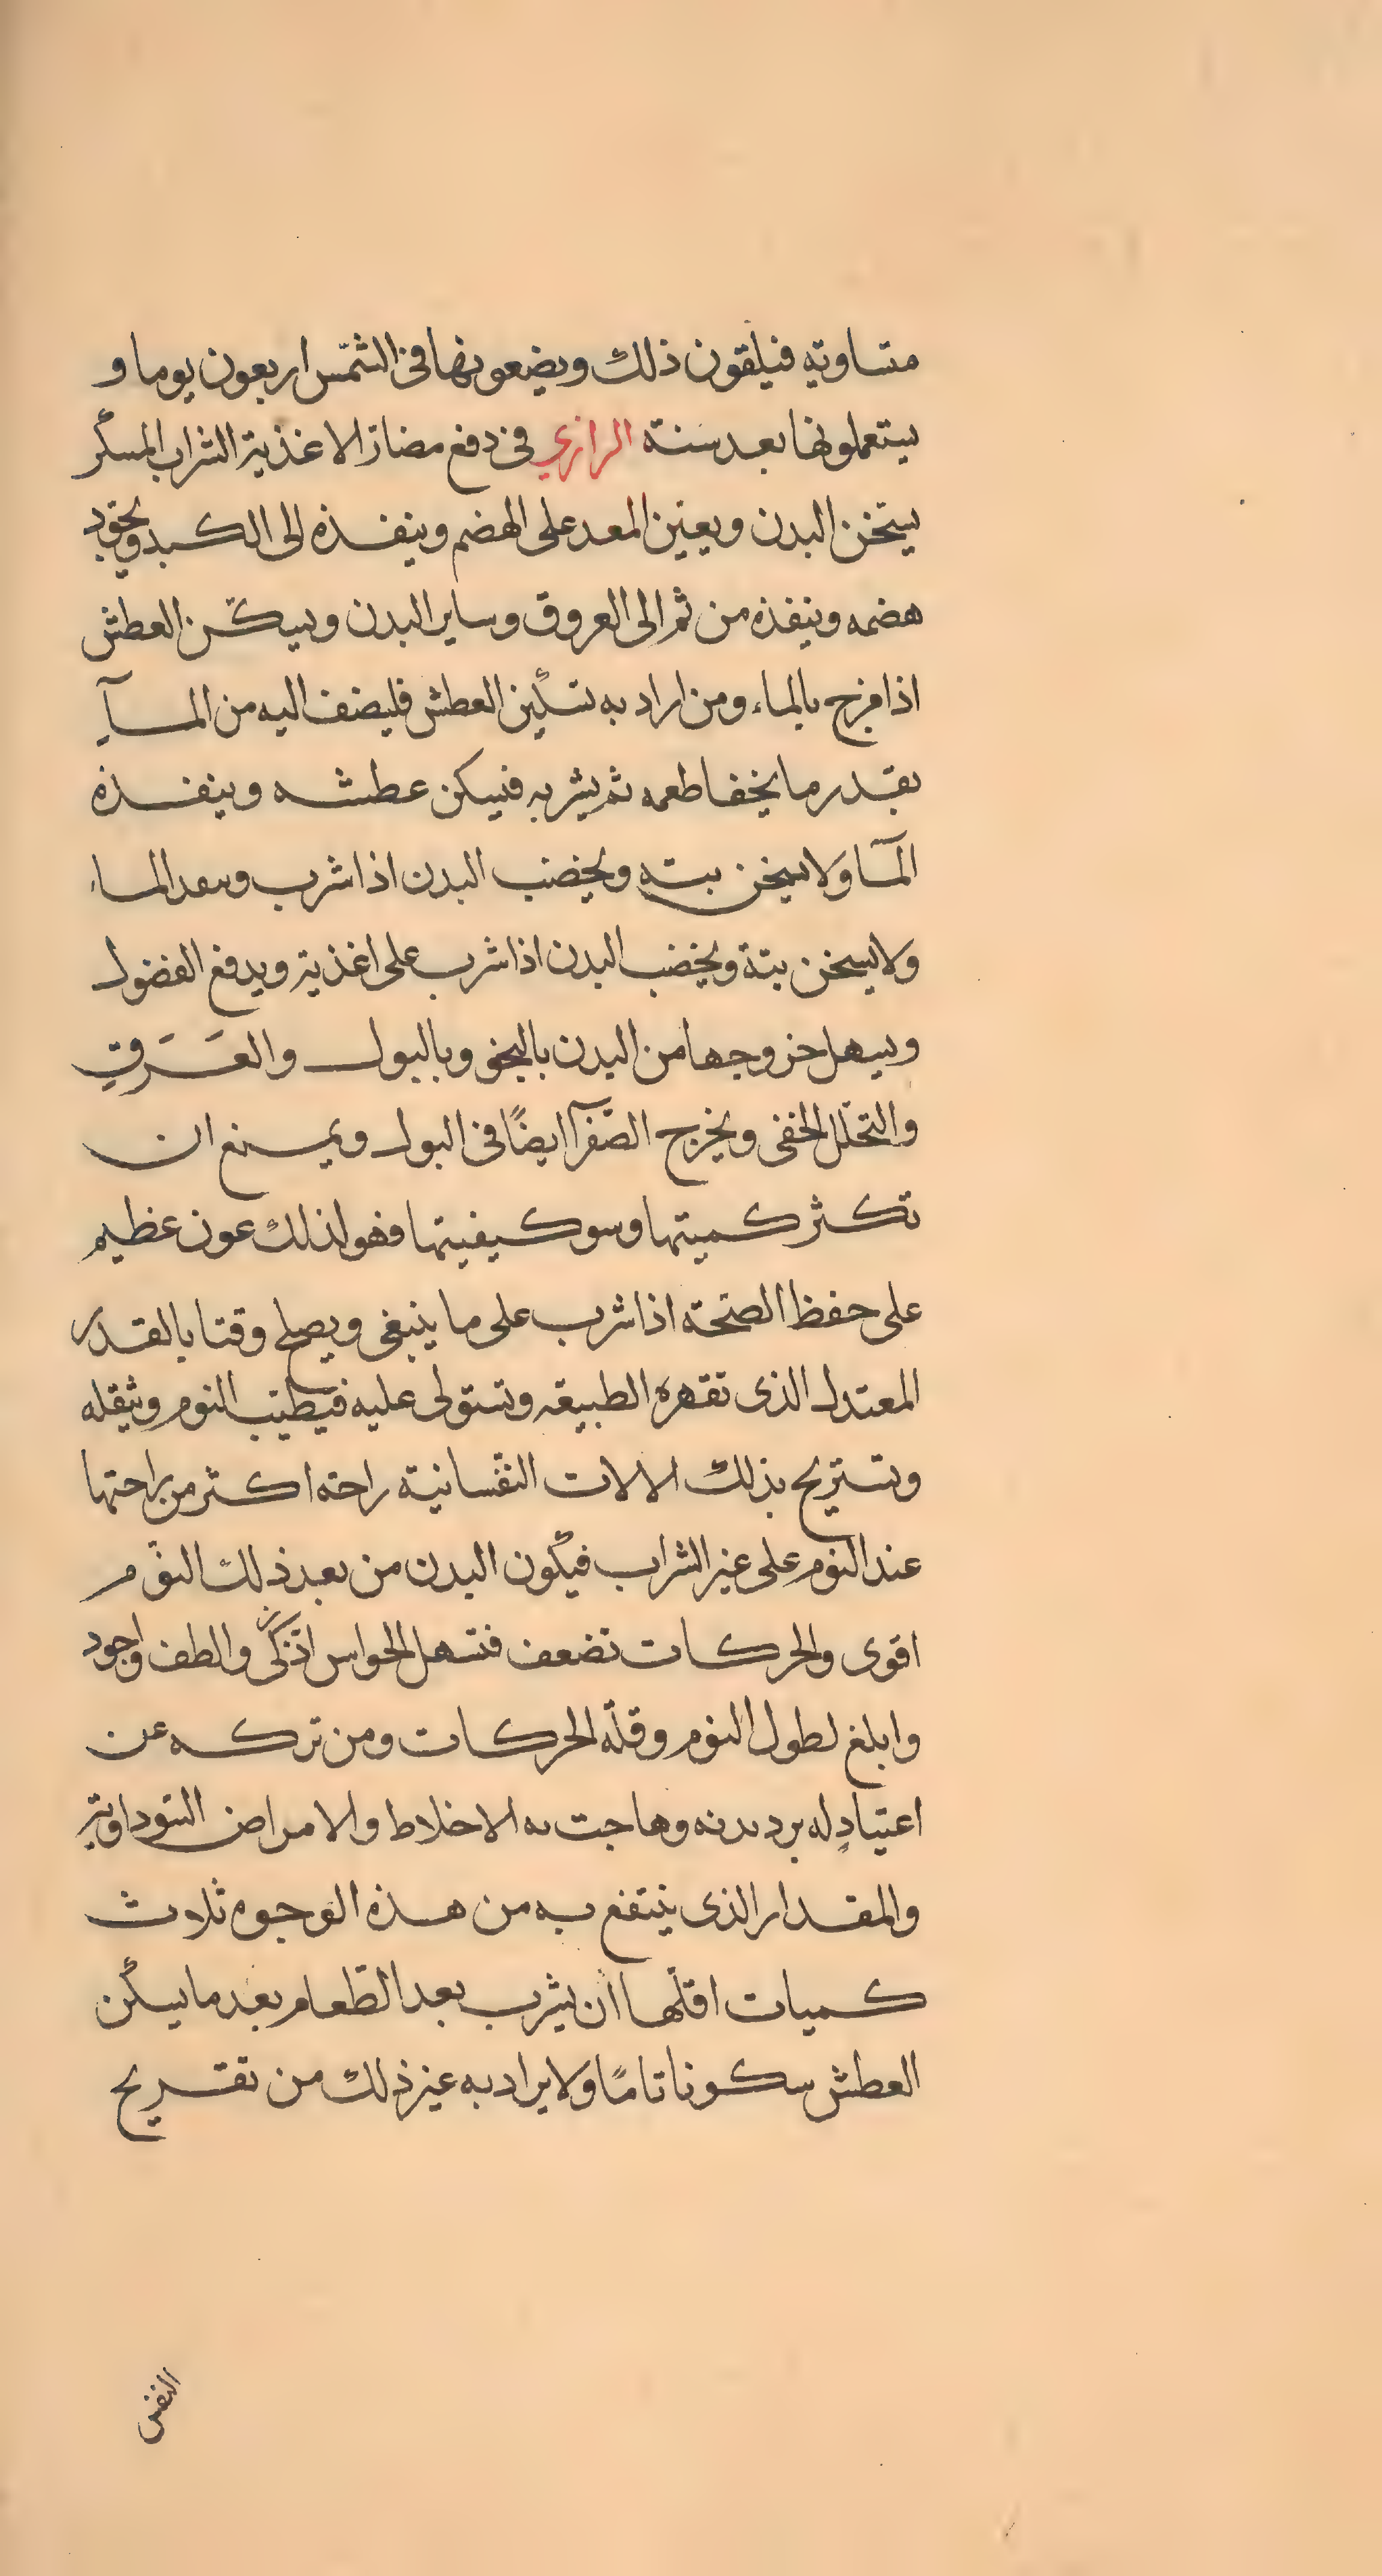 متساوية فيلقون ذلك ويضعونها فى الشمس اربعون يوما و
يستعملونها بعد سنة الرازي فى دفع مضار الاغذية الشراب المسكر
يسخن البدن ويعين المعد على الهضم وينفذه الى الكبد ويجود
هضمه وينفذه من ثم الى العروق وساير البدن ويسكن العطش
اذا مزج بالماء ومن اراد به تسكين العطش فليضف اليه من المآ
بقدر ما يخفا طعمه ثم يشربه فيسكن عطشه وينفذه
المآ ولا يسخن بتة ويخضب البدن اذا شرب وبعد الماء
ولا يسخن بتة ويخضب البدن اذا شرب على اغذية ويدفع الفضول
ويسهل خروجها من البدن بالبخو وبالبول والعَرَقِ
والتحلل الخفى ويخرج الصفرآ ايضًا فى البول ويمنع ان
تكثر كميتها وسو كيفيتها فهو لذلك عون عظيم
على حفظ الصحة اذا شرب على ما ينبغى ويصلح وقتا بالقدر
المعتدل الذى تقهره الطبيعة وتستولى عليه فيطيب النوم ويثقله
وتستريح بذلك الالات النفسانية راحة اكثر من راحتها
عند النوم على غير الشراب فيكون البدن من بعد ذلك النوم
اقوى والحركات تضعف فتسهل الحواس اذكى والطف واجود
وابلغ لطول النوم وقلة الحركات ومن تركه عن
اعتيادٍ له برد بدنه وهاجت به الاخلاط والامراض السوداوية
والمقدار الذى ينتفع به من هذه الوجوه ثلاث
كميات اقلها ان يشرب بعد الطعام بعد ما يسكن
العطش سكونا تامًا ولا يراد به غير ذلك من تفريح
النفس